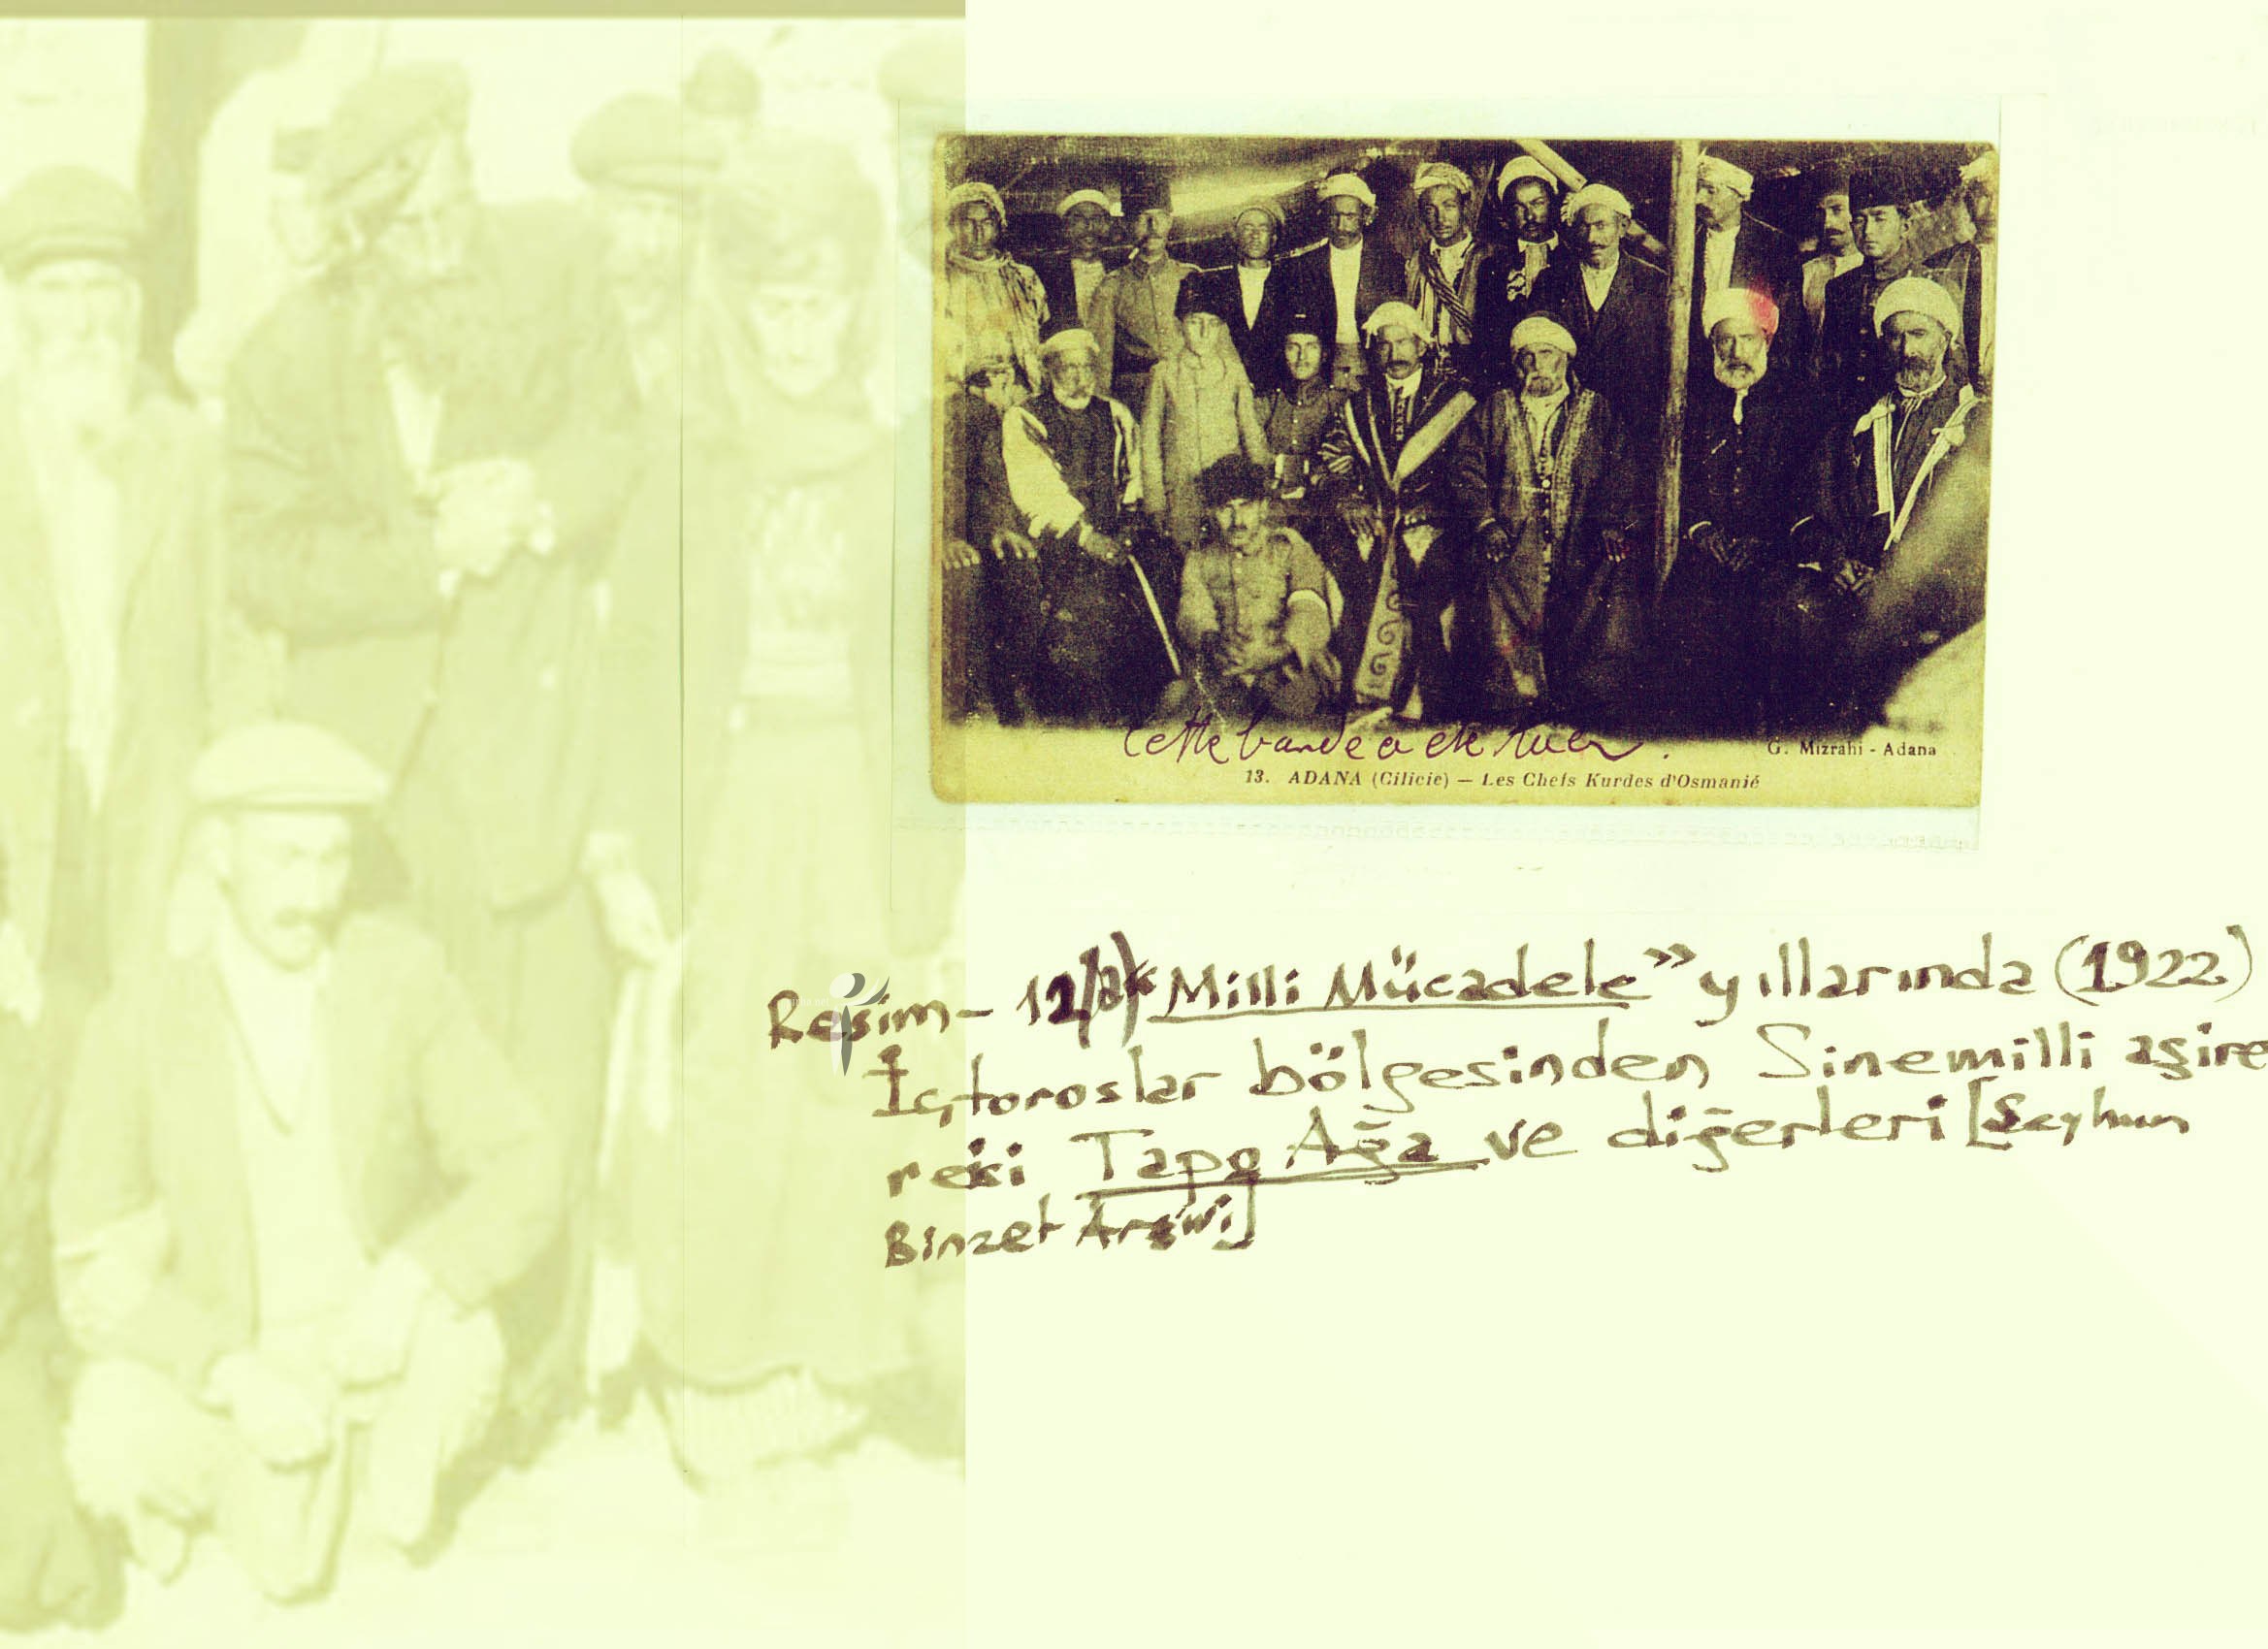 Cette bande a été tuer.
G. Mizrahi - Adana
13. ADANA (Cilicie) — Les Chefs Kurdes d'Osmanié
Resim- 12/a) "Milli Mücadele" yıllarında (1922)
İçtoroslar bölgesinden Sinemilli aşire
reisi Tapo Ağa ve diğerleri [Seyhun
Binzet Arşivi]